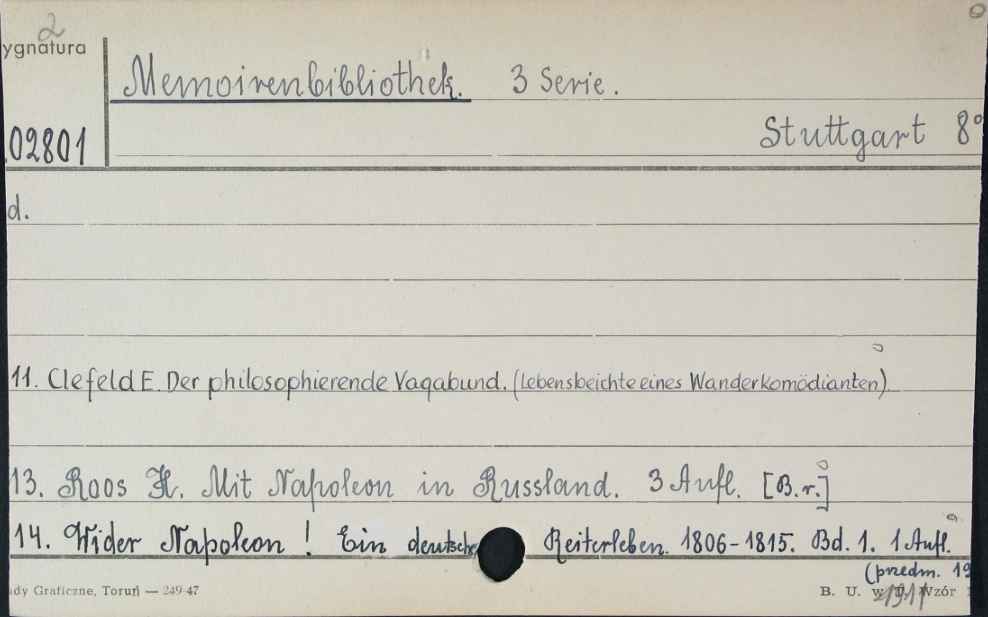 2
ygnatura
Memoirenbibliothek. 3 Serie.
02801
Stuttgart 8°
d.
11. Clefeld E. Der philosophierende Vagabund. (Lebensbeichte eines Wanderkomödianten)
13. Roos H. Mit Napoleon in Russland. 3 Aufl. [B.r.]
14. Wider Napoleon! Ein deutsche Reiterleben. 1806-1815. Bd. 1. 1 Aufl.
(przedm. 19
ady Graficzne, Toruń — 249-47
B. U. w T. Wzór